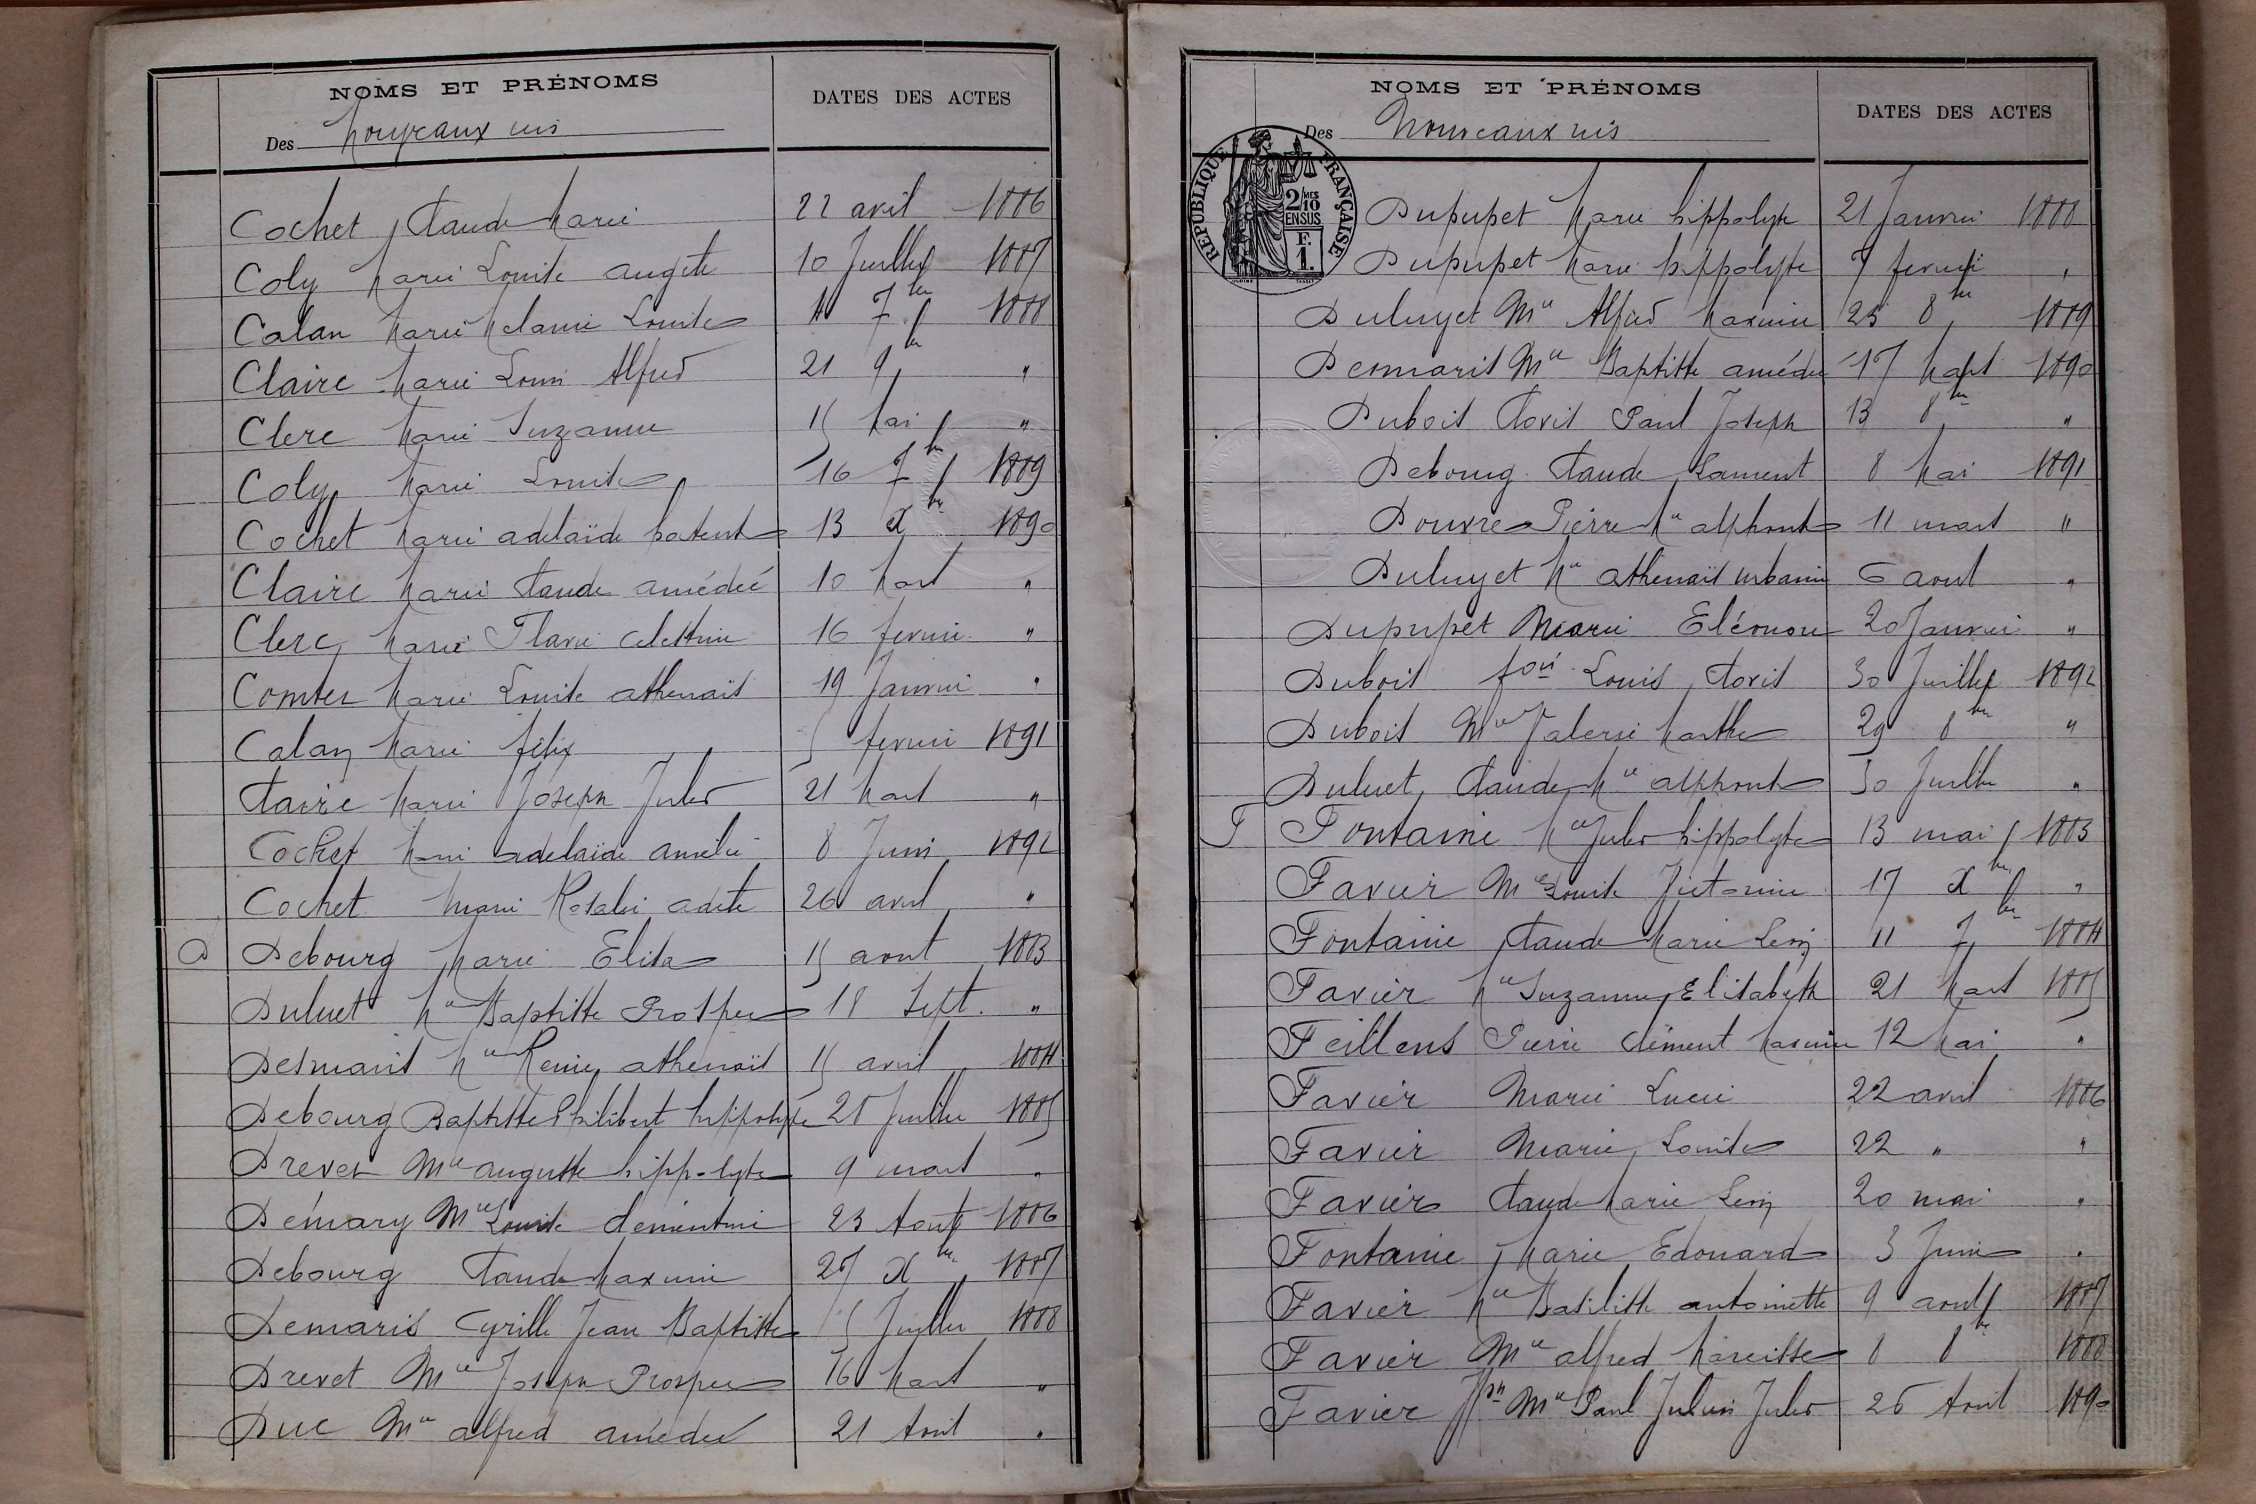 NOMS ET PRÉNOMS
DATES DES ACTES
Des Nouveaux nés
Cochet Claude Marie 22 avril 1886
Coly Marie Louise 10 Juillet 1887
Calan Marie Melanie Louise 7bre 1888
Claire Marie Louis Alfred 21 9bre "
Clerc Marie Suzanne 15 Mai "
Coly Marie Louise 16 7bre 1889
Cochet Marie adelaïde 13 Xbre 1890
Claire Marie Claude amédée 10 Mars "
Clerc Marie Flavie celestine 16 fevrier "
Comtet Marie Louise athenaïs 19 Janvier "
Calan Marie félix 5 fevrier 1891
Claire Marie Joseph Jules 21 Mars "
Cochet Marie adelaïde amélie 8 Juin 1892
Cochet Marie Rosalie adèle 26 avril "
D Debourg Marie Elisa 15 aout 1883
Duluet Mie Baptiste Prosper 18 Sept. "
Desmaris Mie Renie athenaïs 15 avril 1884
Debourg Baptiste Philibert hippolyte 25 Juillet 1885
Drevet Mie auguste hippolyte 9 mars "
Démary Mie Louise clementine 23 Aout 1886
Debourg Claude Maximin 27 Xbre 1887
Demaris Cyrille Jean Baptiste 15 Juillet 1888
Drevet Mie Joseph Prosper 16 Mars "
Duc Mie alfred amédée 21 Aout "
NOMS ET PRÉNOMS
DATES DES ACTES
Des Nouveaux nés
RÉPUBLIQUE FRANÇAISE
2/10 MES
EN SUS
F.
1.
Dupupet Marie hippolyte 21 Janvier 1888
Dupupet Marie hippolyte 9 fevrier "
Duluyet Mie Alfred Maximin 25 8bre 1889
Desmaris Mie Baptiste amédée 17 Mars 1890
Dubois Clovis Paul Joseph 13 8bre "
Debourg Claude Laurent 8 Mai 1891
Douvre Pierre Mie alphonse 11 mars "
Duluyet Mie athenaïs urbanie 6 aout "
Dupupet Marie Eléonore 20 Janvier "
Dubois fois Louis Clovis 30 Juillet 1892
Dubois Mie Valerie Marthe 29 8bre "
Duluet Claude Mie alphonse 30 Juillet "
F Fontaine Mie Jules hippolyte 13 mai 1883
Favier Mie Louise Victorine 17 Xbre "
Fontaine Claude Marie Léon 11 7bre 1884
Favier Mie Suzanne Elisabeth 21 Mars 1885
Feillens Pierre Clément Maximin 12 Mai "
Favier Marie Lucie 22 avril 1886
Favier Marie Louise 22 " "
Favier Claude Marie Léon 20 mai "
Fontaine Marie Edouard 3 Juin "
Favier Mie Basilisse antoinette 9 aout 1887
Favier Mie alfred Marcisse 8 8bre 1888
Favier Jph Mie Paul Julien Jules 26 Aout 1890